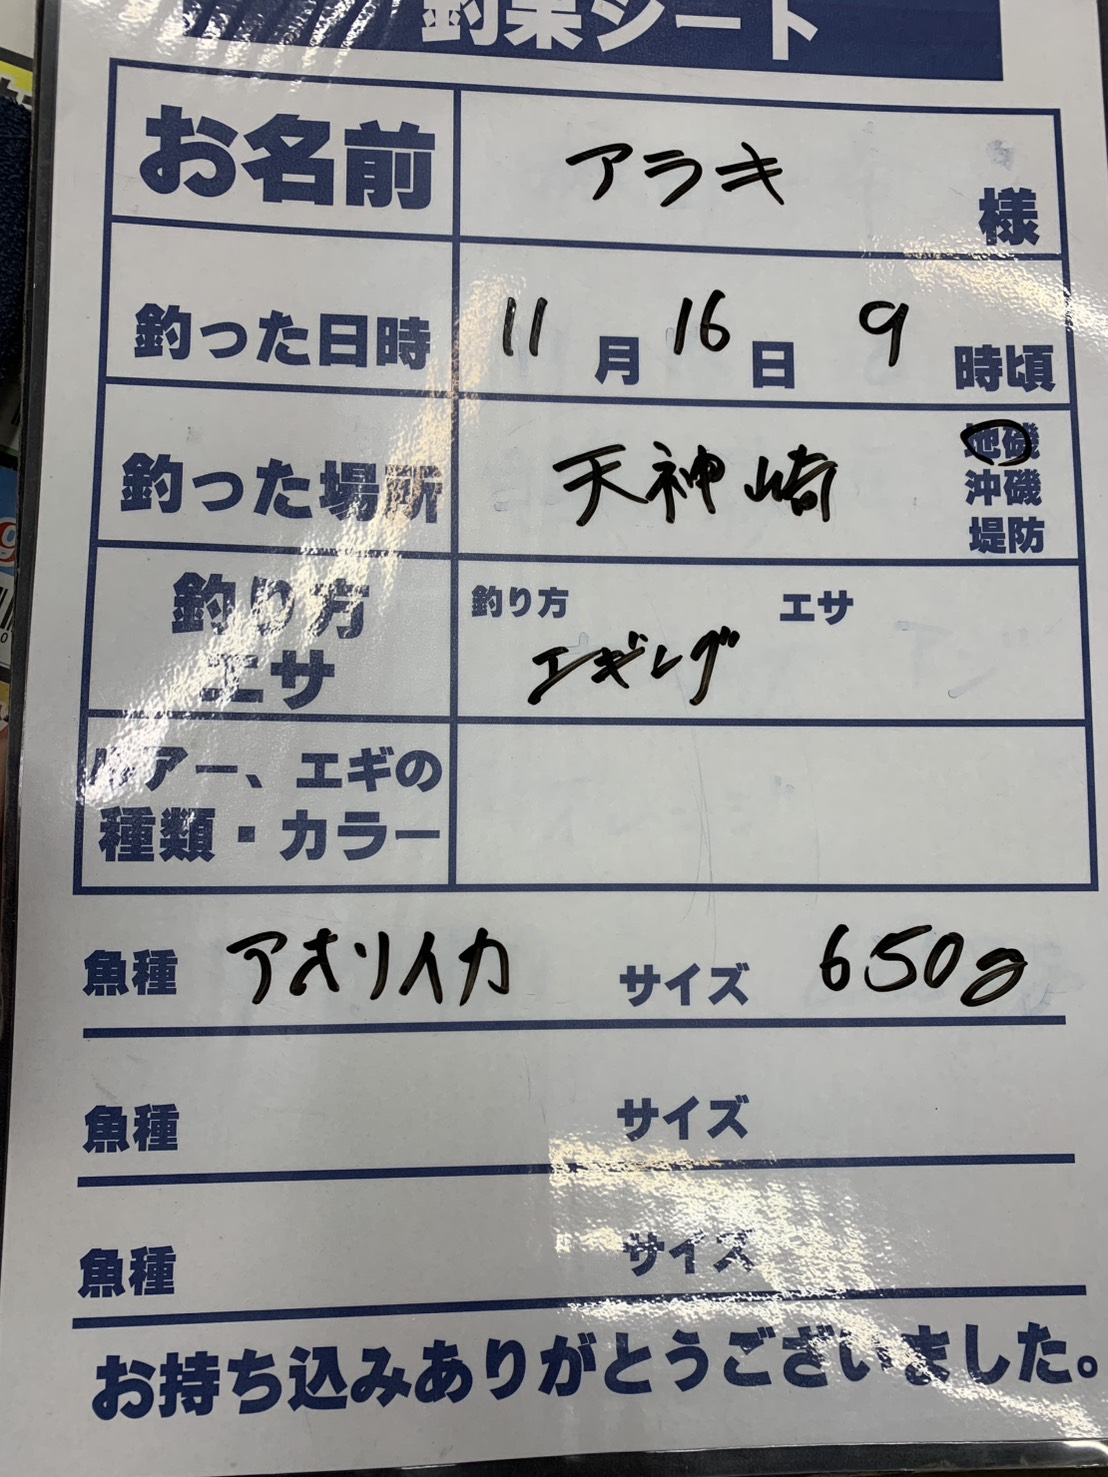 釣果シート
お名前 アラキ 様
釣った日時 11月16日 9時頃
釣った場所 天神崎 地磯
沖磯
堤防
釣り方 釣り方 エサ
エサ エギング
ルアー、エギの
種類・カラー
魚種 アオリイカ サイズ 650g
魚種 サイズ
魚種 サイズ
お持ち込みありがとうございました。